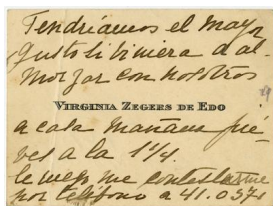 Tendríamos el mayor
gusto si viniera a al-
morzar con nosotros
VIRGINIA ZEGERS DE EDO
a casa mañana jue-
ves a la 1¼.
le ruego me contestarme
por teléfono a 41.037